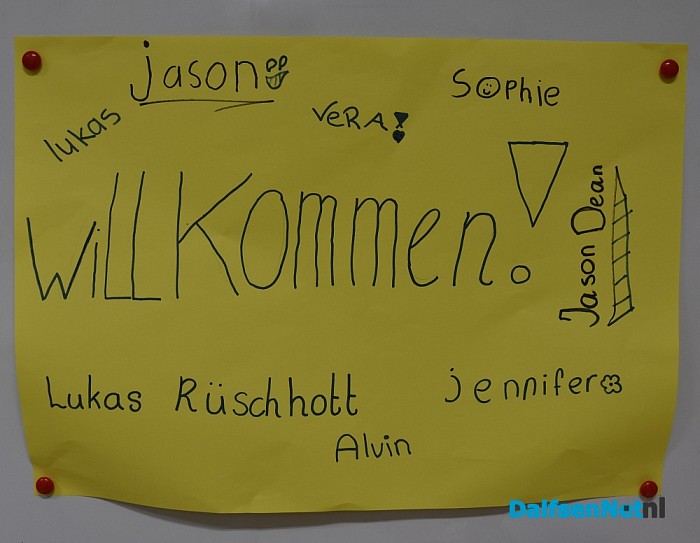 jason
Sophie
VeRA!
lukas
Willkommen!
Jason Dean
Lukas Rüschhott
jennifer
Alvin
DalfsenNet.nl